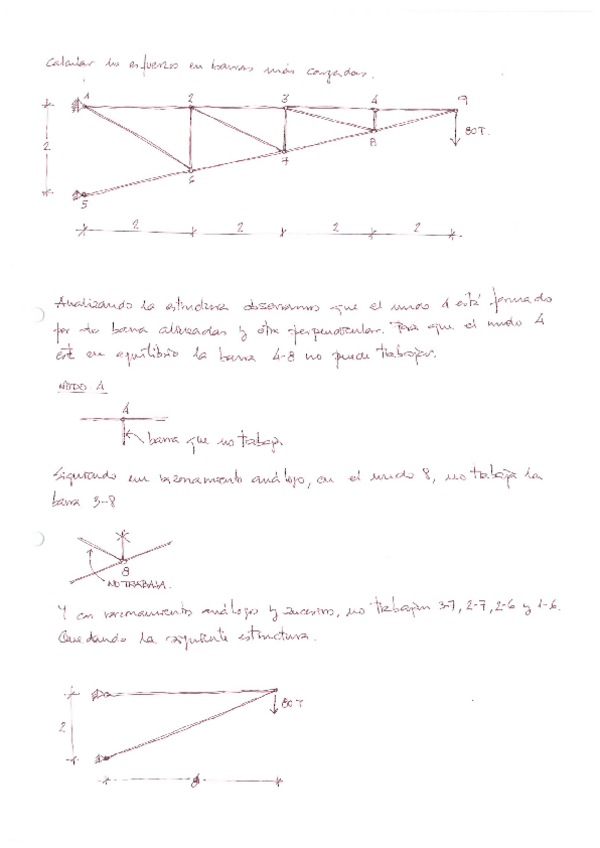 Calcular los esfuerzos en barras más cargadas.
1 2 3 4 9
80T.
2
8
7
6
5
2 2 2 2
Analizando la estructura observamos que el nudo 4 está formado
por dos barras alineadas y otra perpendicular. Para que el nudo 4
esté en equilibrio la barra 4-8 no puede trabajar.
NUDO 4
4
barra que no trabaja
Siguiendo un razonamiento análogo, en el nudo 8, no trabaja la
barra 3-8
8
NO TRABAJA.
Y con razonamientos análogos y sucesivos, no trabajan 3-7, 2-7, 2-6 y 1-6.
Quedando la siguiente estructura.
80T
2
8